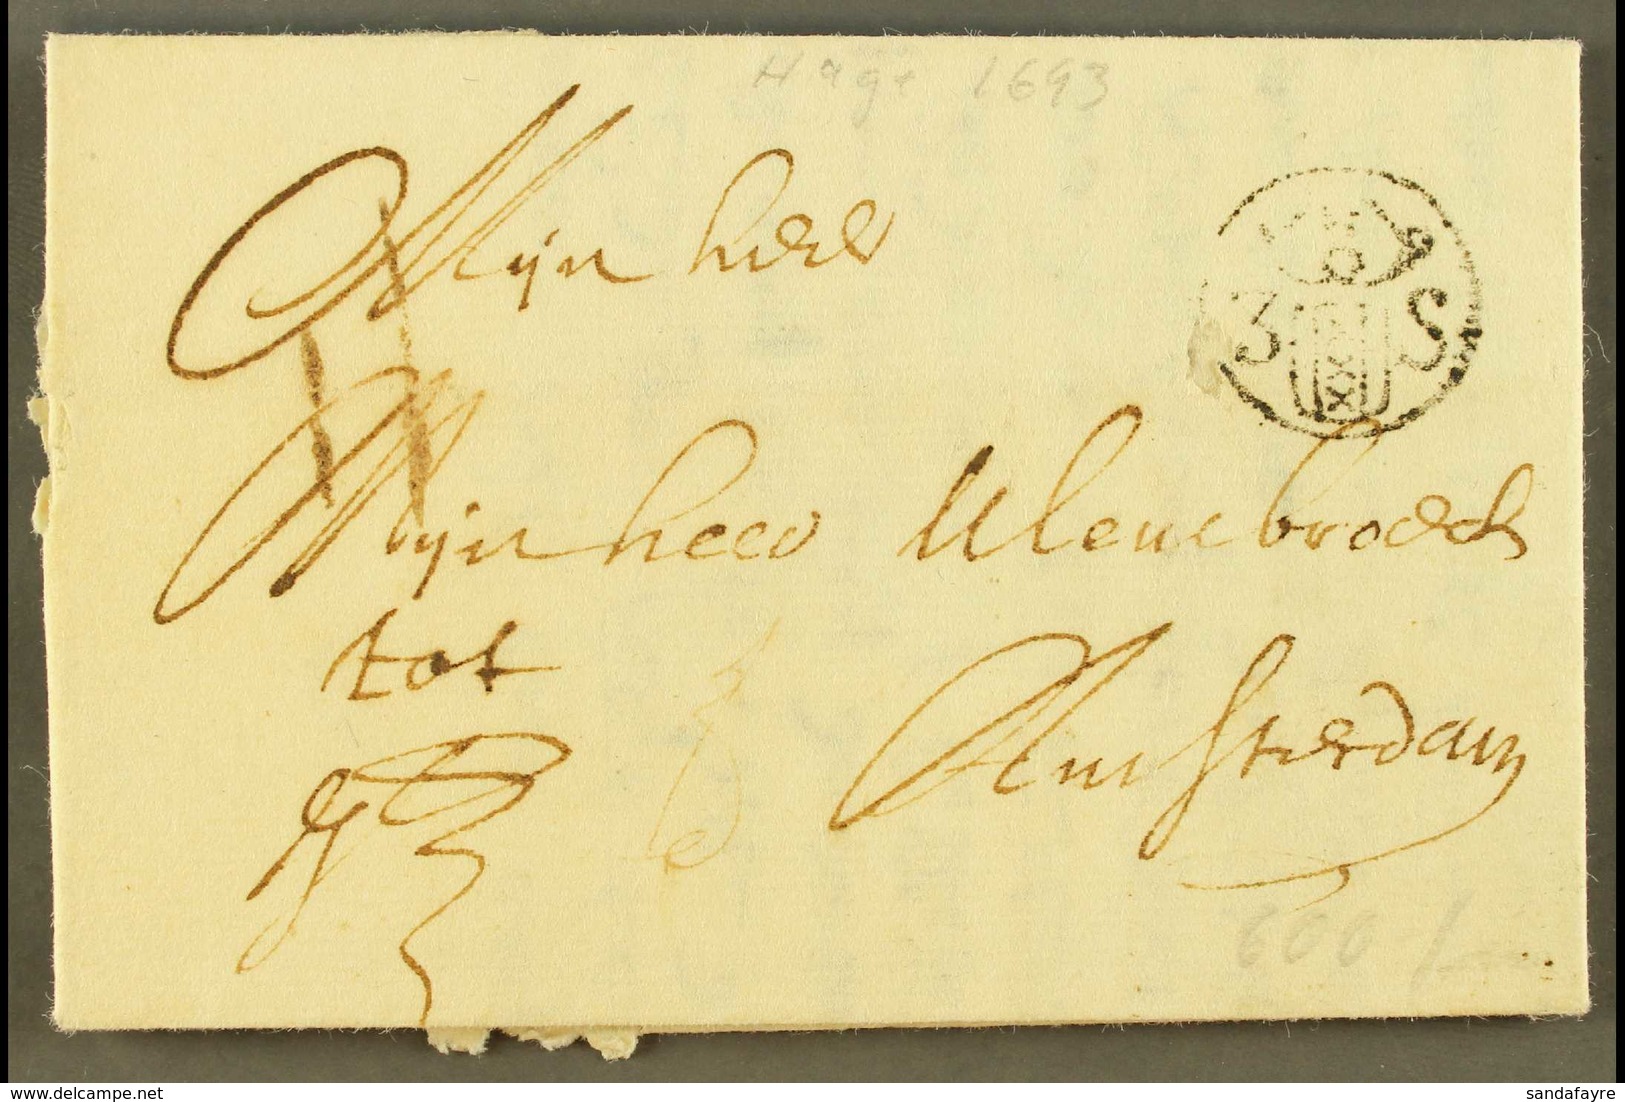 Hage 1693
Mijn heer
3 S
XXX
Mijn heer Ulenbroeck
tot
Amsterdam
600
delcampe.net
sandafayre